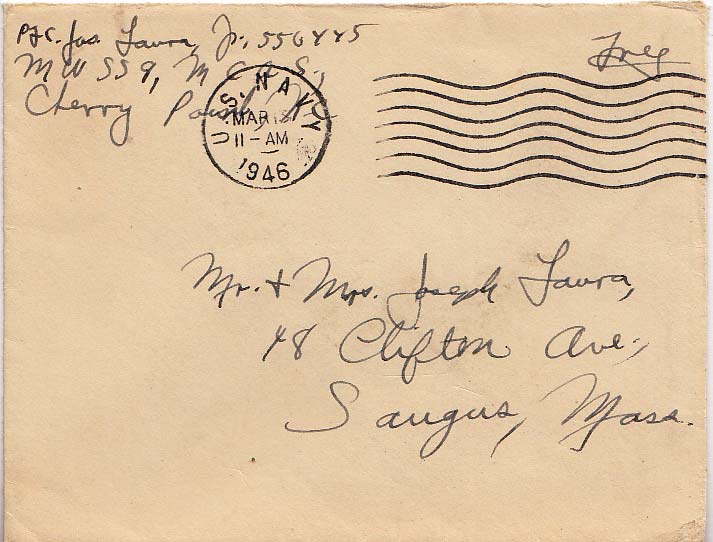 Pfc. Jos. Laura, Jr., 556445
Free
MWSS 9, M.C.A.S.,
Cherry Point, N.C.
U.S. NAVY
MAR
11-AM
1946
Mr. & Mrs. Joseph Laura,
48 Clifton Ave.,
Saugus, Mass.